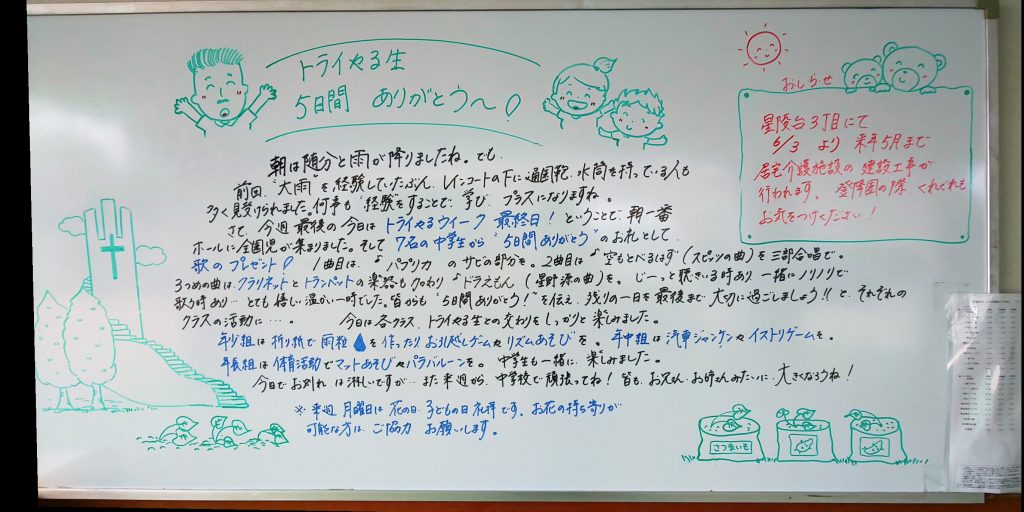 トライやる生
5日間 ありがとう〜!
おしらせ
星陵台3丁目にて
6/3 より 来年5月まで
居宅介護施設の建設工事が
行われます。登降園の際、くれぐれも
お気をつけください!
朝は随分と雨が降りましたね。でも、
前回、“大雨”を経験していたぶん、レインコートの下に通園靴、水筒を持っている人も
多く見受けられました。何事も“経験をすることで”学び、プラスになりますね。
さて、今週最後の今日はトライやるウィーク 最終日! ということで、朝一番
ホールに全園児が集まりました。そして7名の中学生から“5日間ありがとう”のお礼として、
歌のプレゼント! 1曲目は、♪パプリカ のサビの部分を。2曲目は♪空もとべるはず(スピッツの曲)を三部合唱で。
3つめの曲は、クラリネットとトランペットの楽器も加わり♪ドラえもん(星野源の曲)を。じーっと聴きいる時あり、一緒にノリノリで
歌う時あり…とても嬉しい温かい一時でした。皆からも“5日間ありがとう!”を伝え、残りの一日を最後まで大切に過ごしましょう!!と、それぞれの
クラスの活動に…。 今日は各クラス、トライやる生との交わりをしっかりと楽しみました。
年少組は折り紙で雨粒を作ったりお引越しゲームやリズムあそびを。年中組は汽車ジャンケンやイストリゲームを。
年長組は体育活動でマットあそびやパラバルーンを。中学生も一緒に楽しみました。
今日でお別れ…は淋しいですが…また来週から、中学校で頑張ってね! 皆も、お兄さん、お姉さんみたいに、大きくなろうね!
※来週 月曜日は花の日・子どもの日礼拝です。お花の持ち寄りが
可能な方は、ご協力 お願いします。
さつまいも